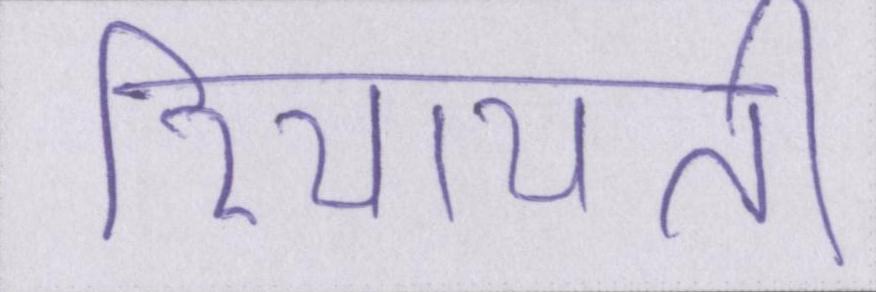 रियायती